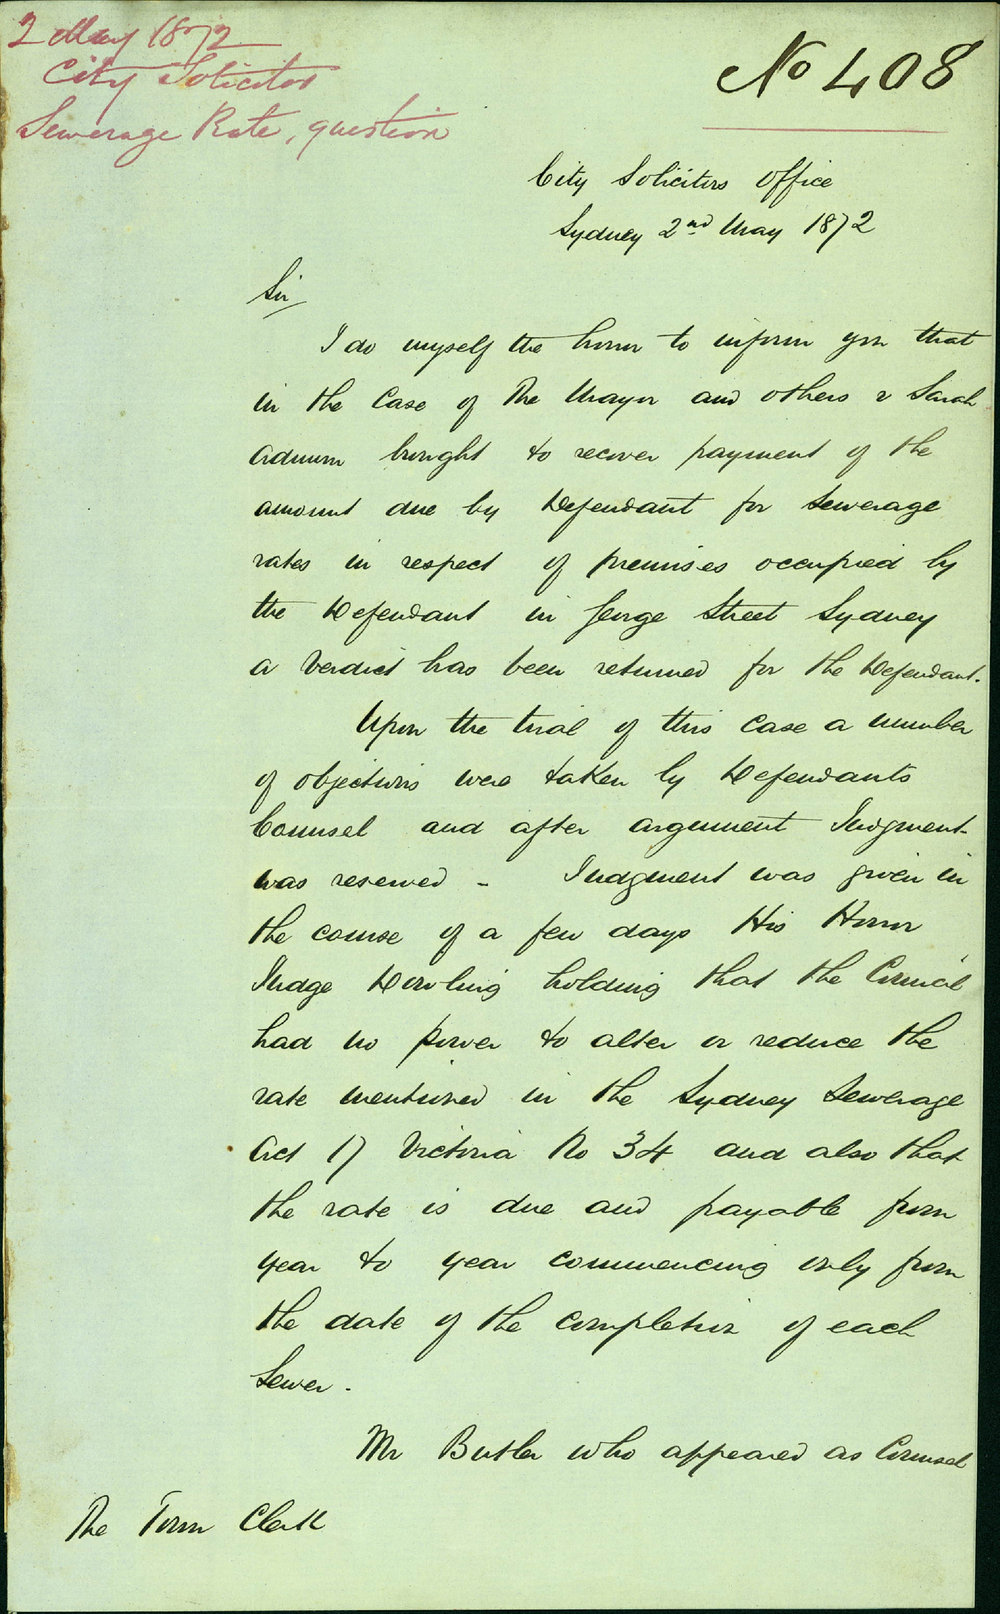 2 May 1872
City Solicitor
Sewerage Rate, question
No 408
City Solicitors Office
Sydney 2nd May 1872
Sir
I do myself the honor to inform you that
in the Case of The Mayor and others v Sarah
brought to recover payment of the
amount due by Defendant for Sewerage
rates in respect of premises occupied by
the Defendant in George Street Sydney
a Verdict has been returned for the Defendant.
Upon the trial of this case a number
of objections were taken by Defendants
Counsel and after argument Judgment
was reserved - Judgment was given in
the course of a few days His Honor
Judge Dowling holding that the Council
had no power to alter or reduce the
rate mentioned in the Sydney Sewerage
Act 17 Victoria No 34 and also that
the rate is due and payable from
year to year commencing only from
the date of the completion of each
Sewer.
Mr Butler who appeared as Counsel
The Town Clerk